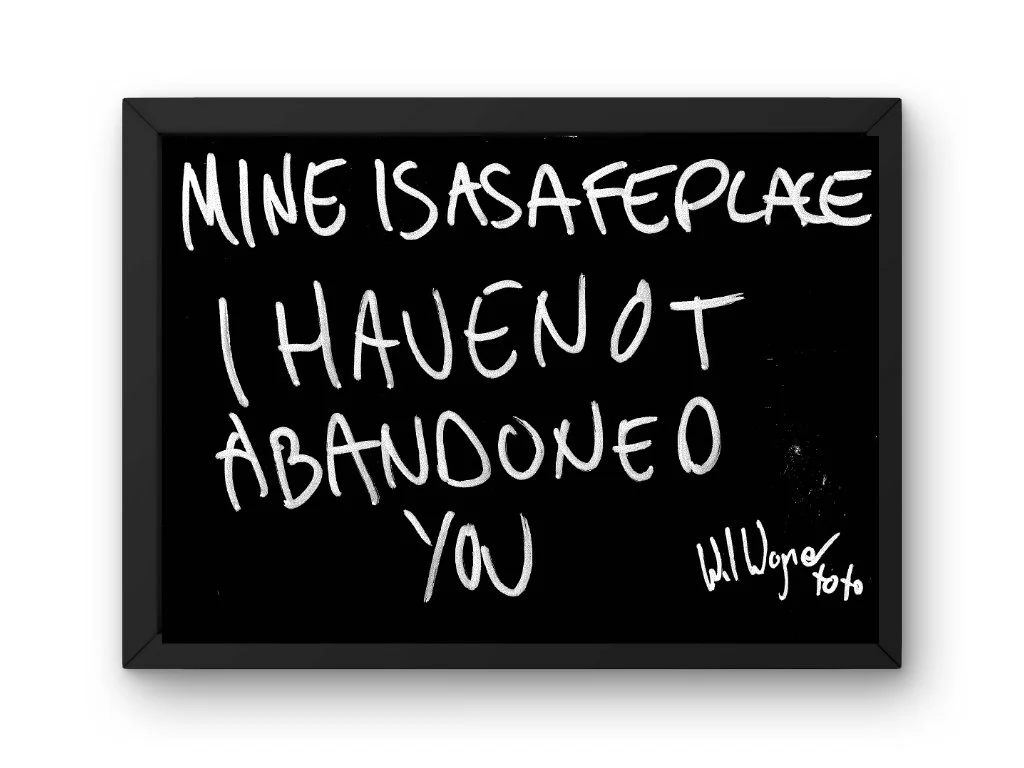 MINE IS A SAFE PLACE
I HAVE NOT
ABANDONED
YOU
Wil Wagner
toto